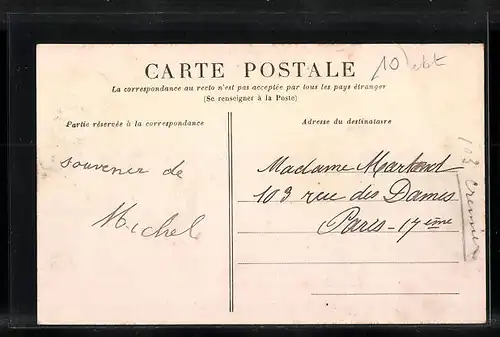 CARTE POSTALE
10
La correspondance au recto n'est pas acceptée par tous les pays étranger
(Se renseigner à la Poste)
Partie réservée à la correspondance
Adresse du destinataire
souvenir de
Michel
Madame
103 rue des Dames
Paris-17ième
103